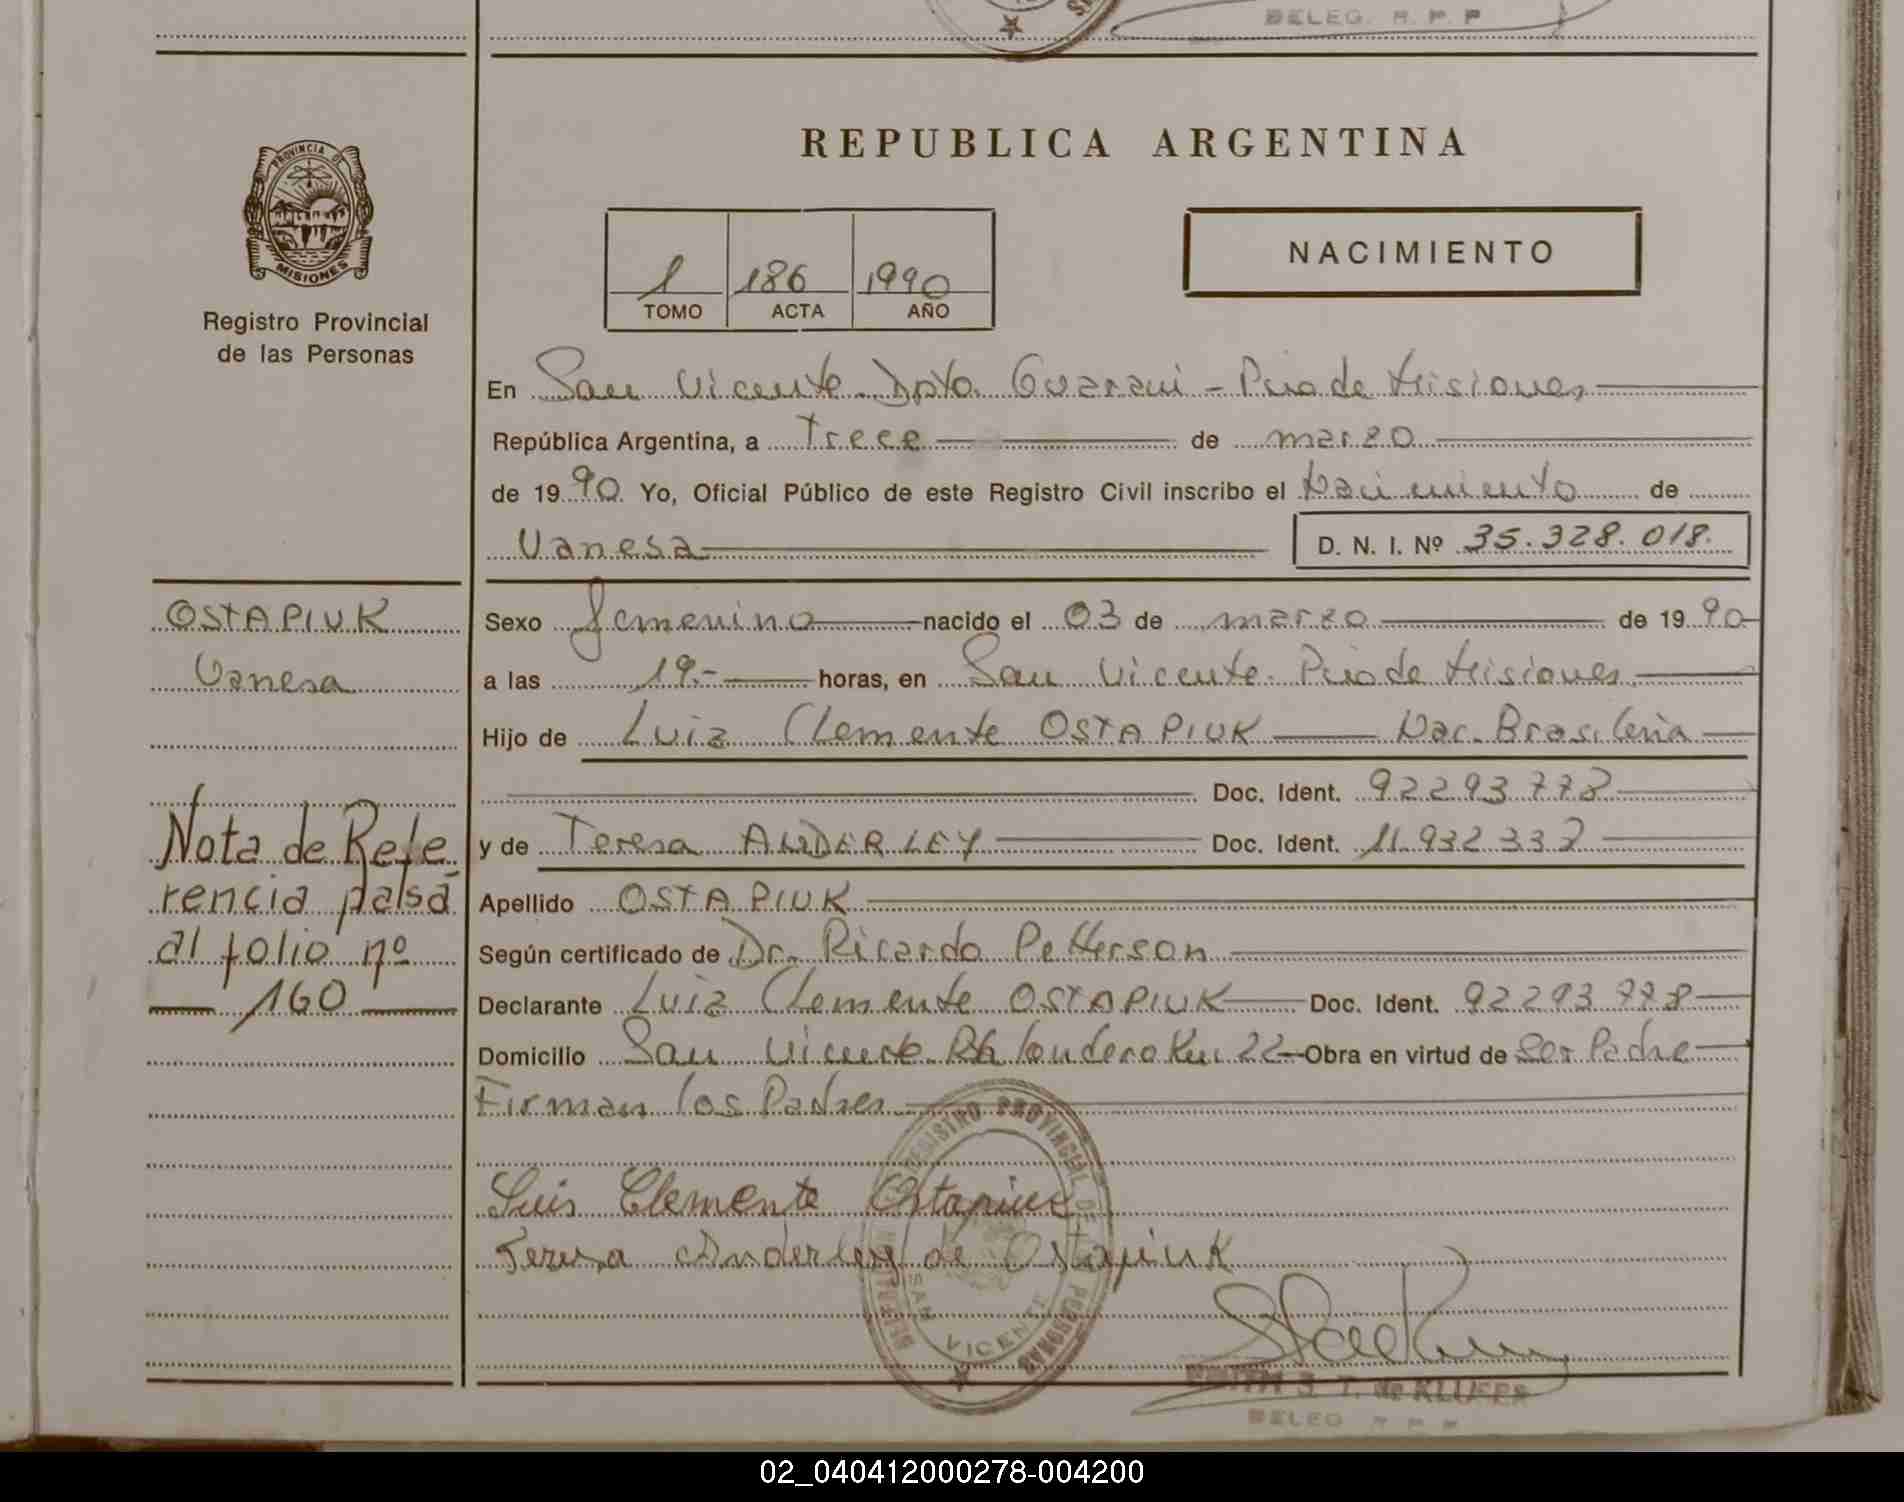 BELEG. R. P. P
REPUBLICA ARGENTINA
PROVINCIA DE
MISIONES
Registro Provincial
de las Personas
1 186 1990
TOMO ACTA AÑO
NACIMIENTO
En San Vicente Dpto. Guarani - Pcia de Misiones
República Argentina, a Trece de marzo
de 1990. Yo, Oficial Público de este Registro Civil inscribo el Nacimiento de
Vanesa D. N. I. Nº 35.328.018.
OSTAPIUK
Vanesa
Sexo femenino nacido el 03 de marzo de 1990
a las 19.- horas, en San Vicente Pcia de Misiones
Hijo de Luiz Clemente OSTAPIUK Nac. Brasileña
Doc. Ident. 92293778
y de Teresa ANDERLEY Doc. Ident. 11.932.337
Apellido OSTAPIUK
Según certificado de Dr. Ricardo Petterson
Declarante Luiz Clemente OSTAPIUK Doc. Ident. 92293778
Domicilio San Vicente 22 Obra en virtud de Ser Padre
Firman los Padres
Nota de Refe
rencia pasa
al folio nº
160
Luis Clemente Ostapiuk
Teresa Anderley de Ostapiuk
REGISTRO PROVINCIAL DE LAS PERSONAS
SAN VICENTE
EDITH S. T. de KLUFER
BELEG R P P
02_040412000278-004200